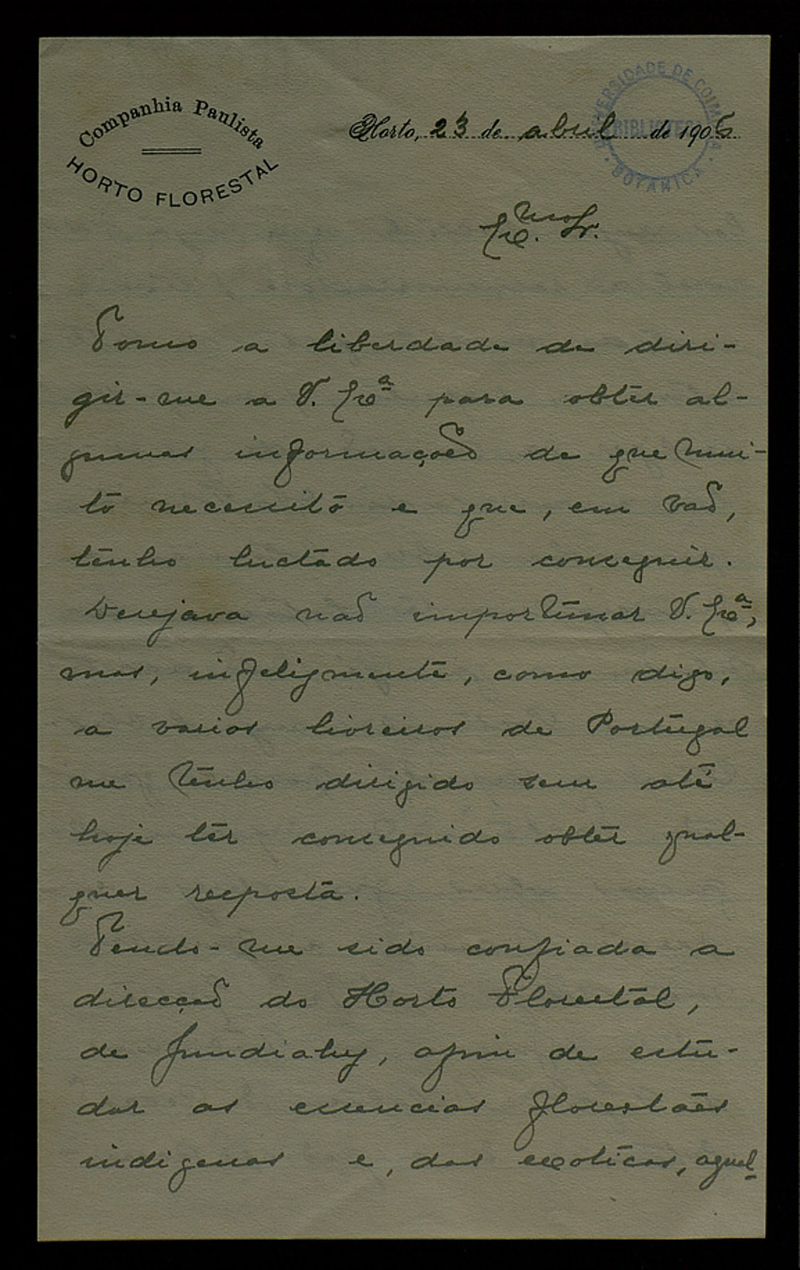 Companhia Paulista
HORTO FLORESTAL
Horto, 23 de abril de 1906
UNIVERSIDADE DE COIMBRA
BIBLIOTECA
BOTANICA
Ex.mo Sr.
Tomo a liberdade de diri-
gir-me a V. Ex.ª para obter al-
gumas informações de que mui-
to necessito e que, em vaõ,
tenho luctado por conseguir.
Desejava naõ importunar V. Ex.ª,
mas, infelizmente, como digo,
a varios livreiros de Portugal
me tenho dirigido sem até
hoje ter conseguido obter qual-
quer resposta.
Tendo-me sido confiada a
direcçaõ do Horto Florestal,
de Jundiahy, afim de estu-
dar as essencias florestães
indigenas e, das exoticas, aquel-